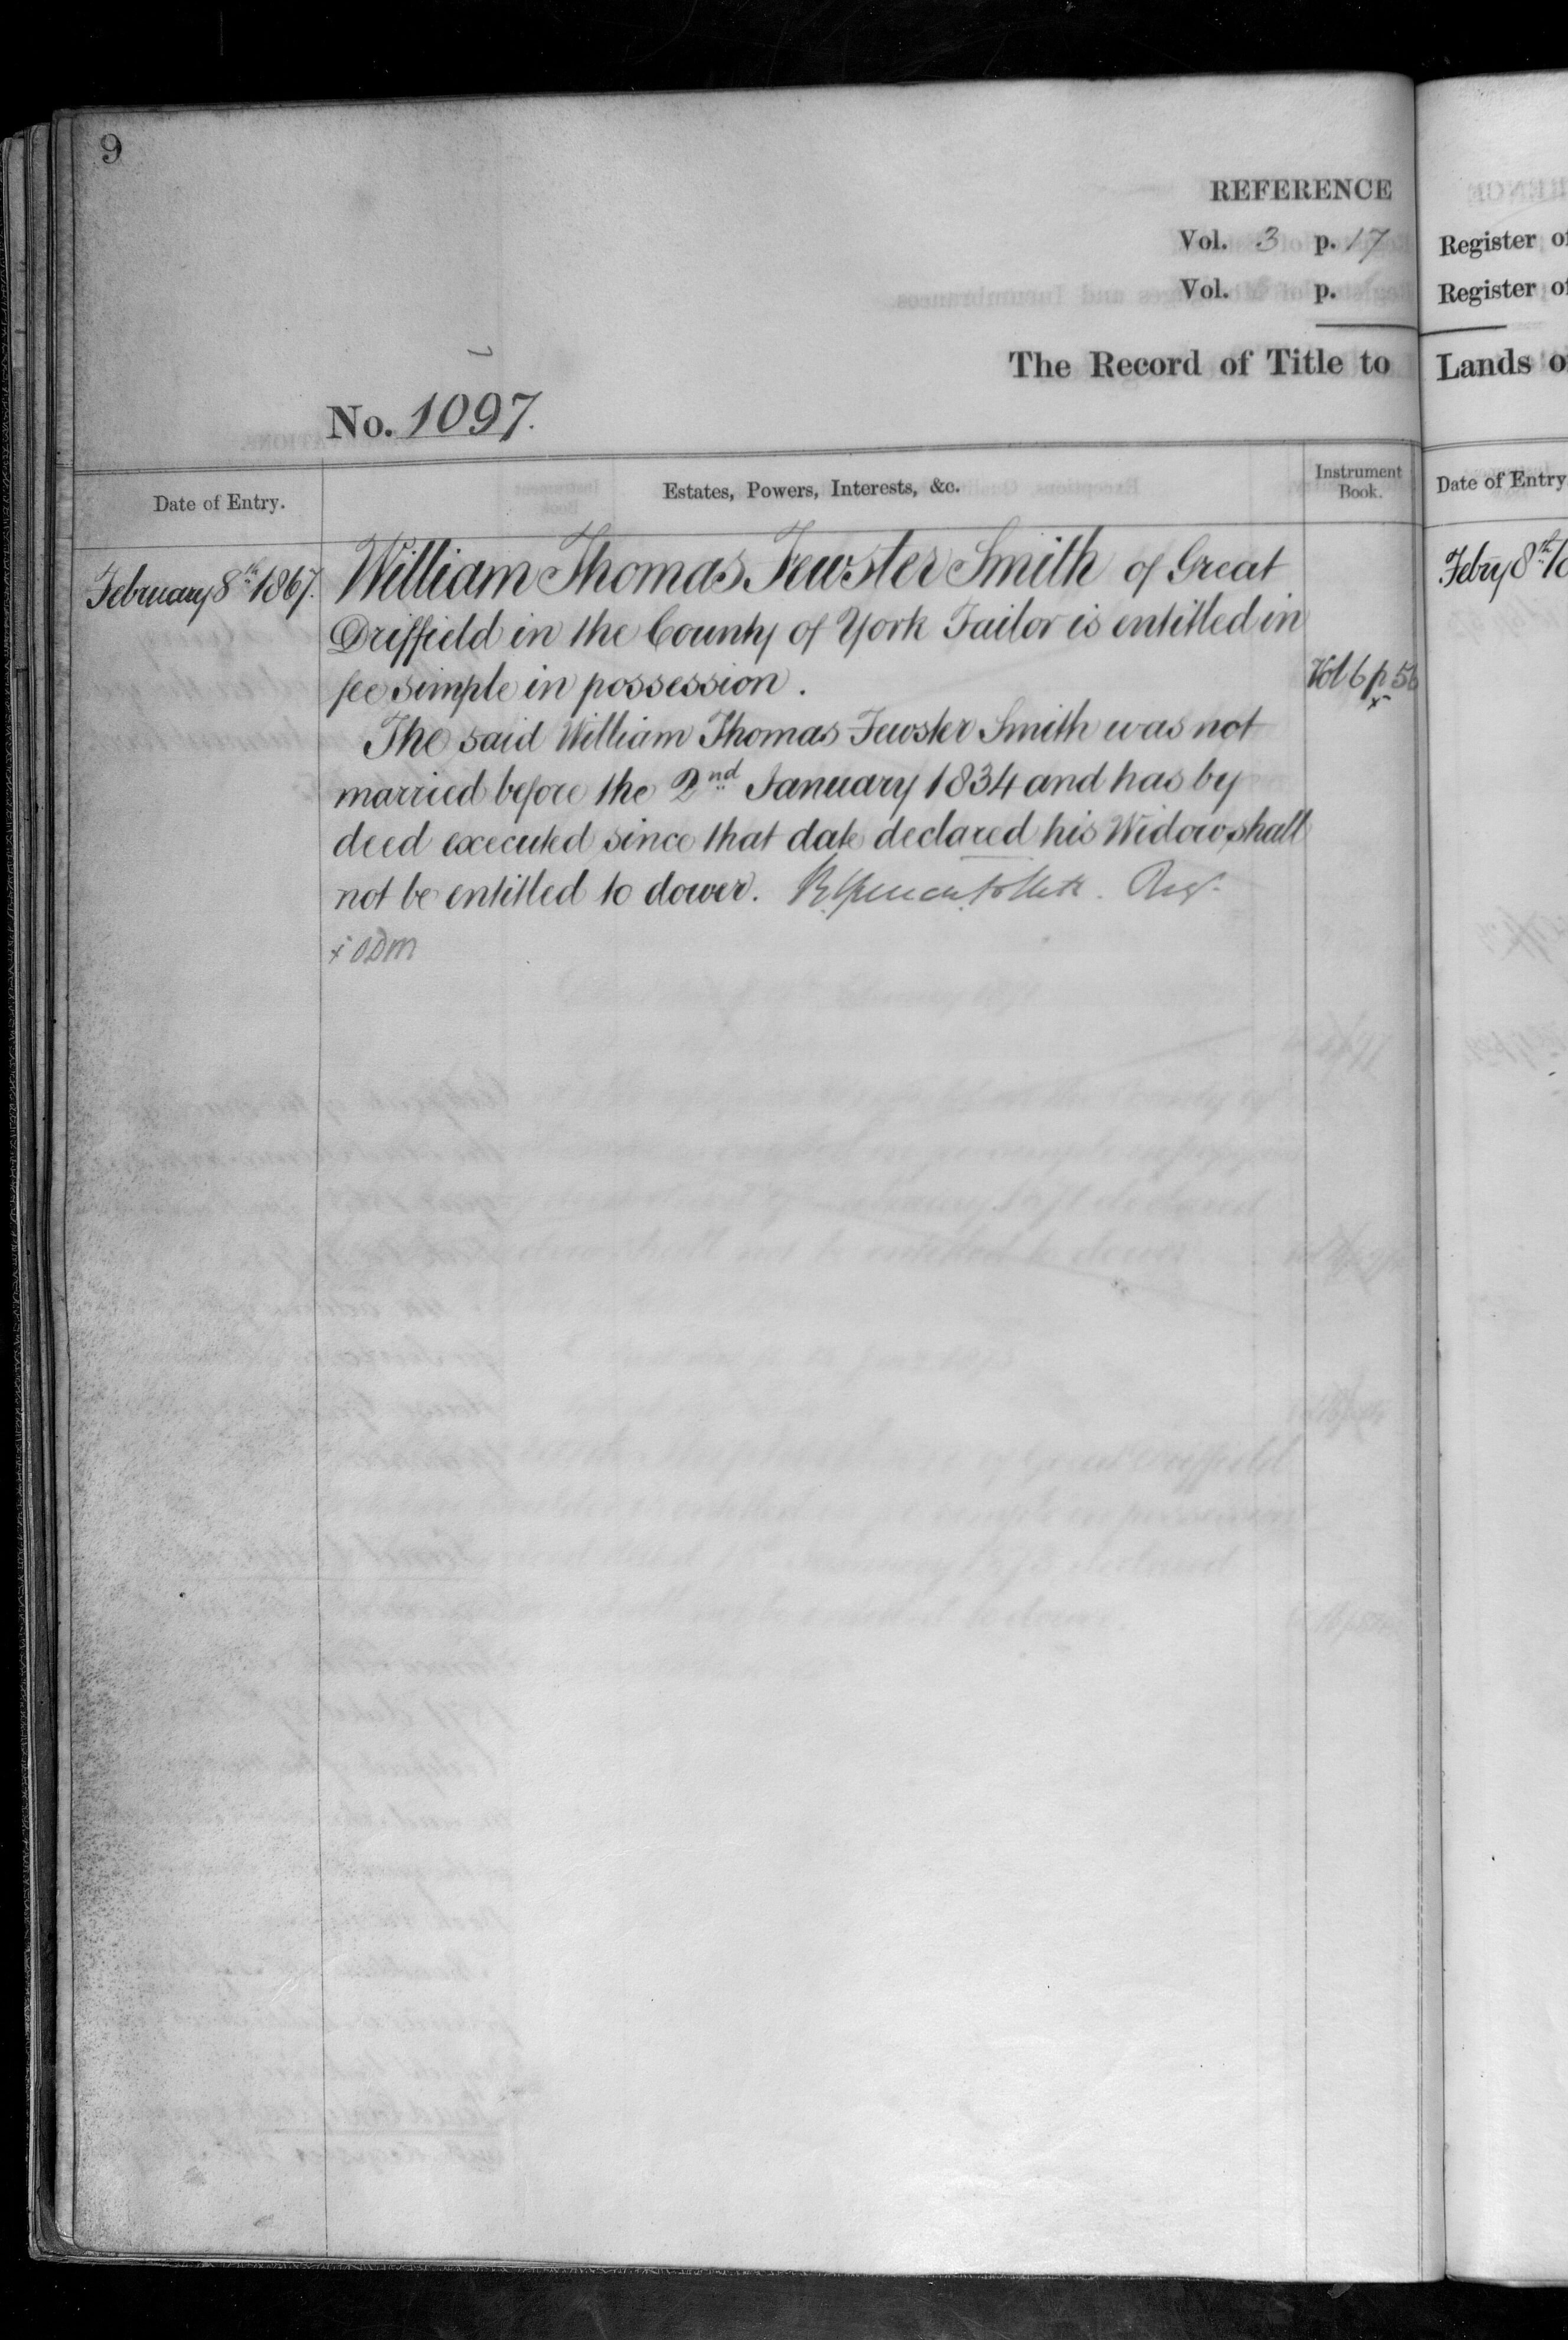 9
REFERENCE
Vol. 3 p. 17
Vol. p.
The Record of Title to
No. 1097.
Date of Entry.
Estates, Powers, Interests, &c.
Instrument
Book.
February 8th 1867.
William Thomas Fewster Smith of Great
Driffield in the County of York Tailor is entitled in
fee simple in possession.
Vol 6 p 56
x
The said William Thomas Fewster Smith was not
married before the 2nd January 1834 and has by
deed executed since that date declared his Widow shall
not be entitled to dower. Regr
x ODM
Register of
Register of
Lands o
Date of Entry
Febry 8th 1